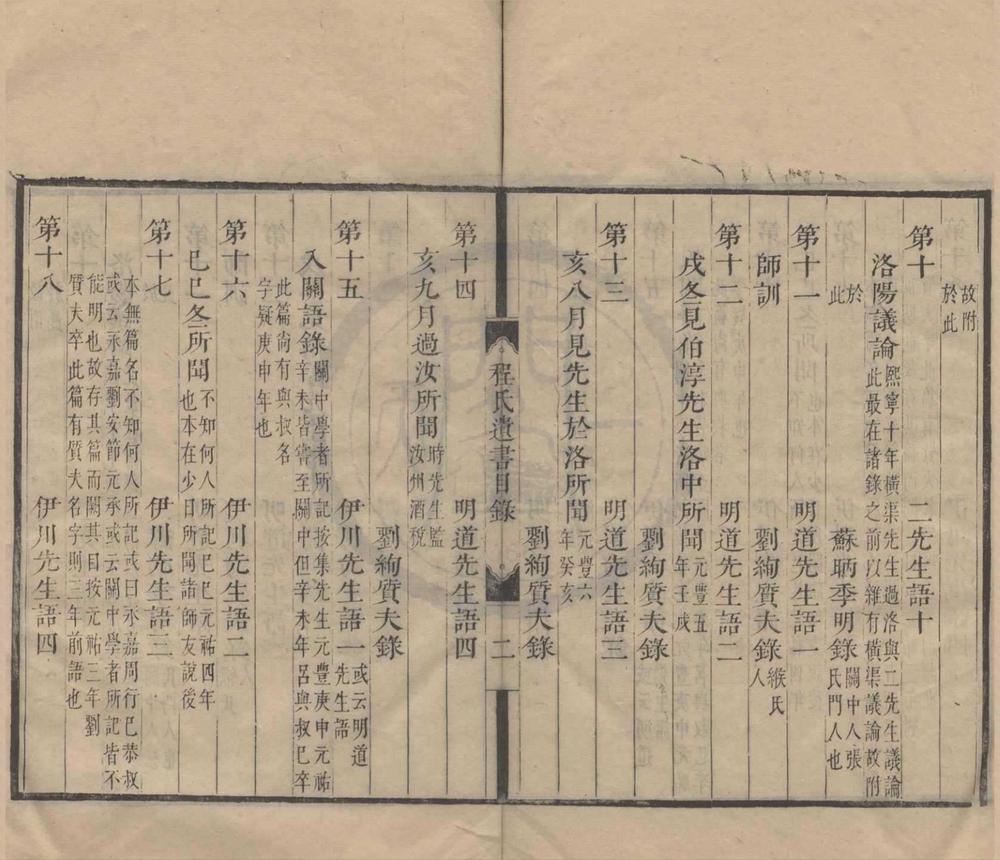 故附
於此
第十　二先生語十
洛陽議論熙寧十年橫渠先生過洛與二先生議論
此最在諸錄之前以雜有橫渠議論故附
於
此
蘇昞季明錄關中人張
氏門人也
第十一　明道先生語一
師訓　劉絢質夫錄緱氏
人
第十二　明道先生語二
戌冬見伯淳先生洛中所聞元豐五
年壬戌
劉絢質夫錄
第十三　明道先生語三
亥八月見先生於洛所聞元豐六
年癸亥
劉絢質夫錄
程氏遺書目錄　二
第十四　明道先生語四
亥九月過汝所聞時先生監
汝州酒稅
劉絢質夫錄
第十五　伊川先生語一或云明道
先生語
入關語錄關中學者所記按集先生元豐庚申元祐
辛未皆嘗至關中但辛未年呂與叔已卒
此篇尚有與叔名
字疑庚申年也
第十六　伊川先生語二
己巳冬所聞不知何人所記己巳元祐四年
也本在少日所聞諸師友說後
第十七　伊川先生語三
本無篇名不知何人所記或曰永嘉周行已恭叔
或云永嘉劉安節元承或云關中學者所記皆不
能明也故存其篇而闕其目按元祐三年劉
質夫卒此篇有質夫名字則三年前語也
第十八　伊川先生語四